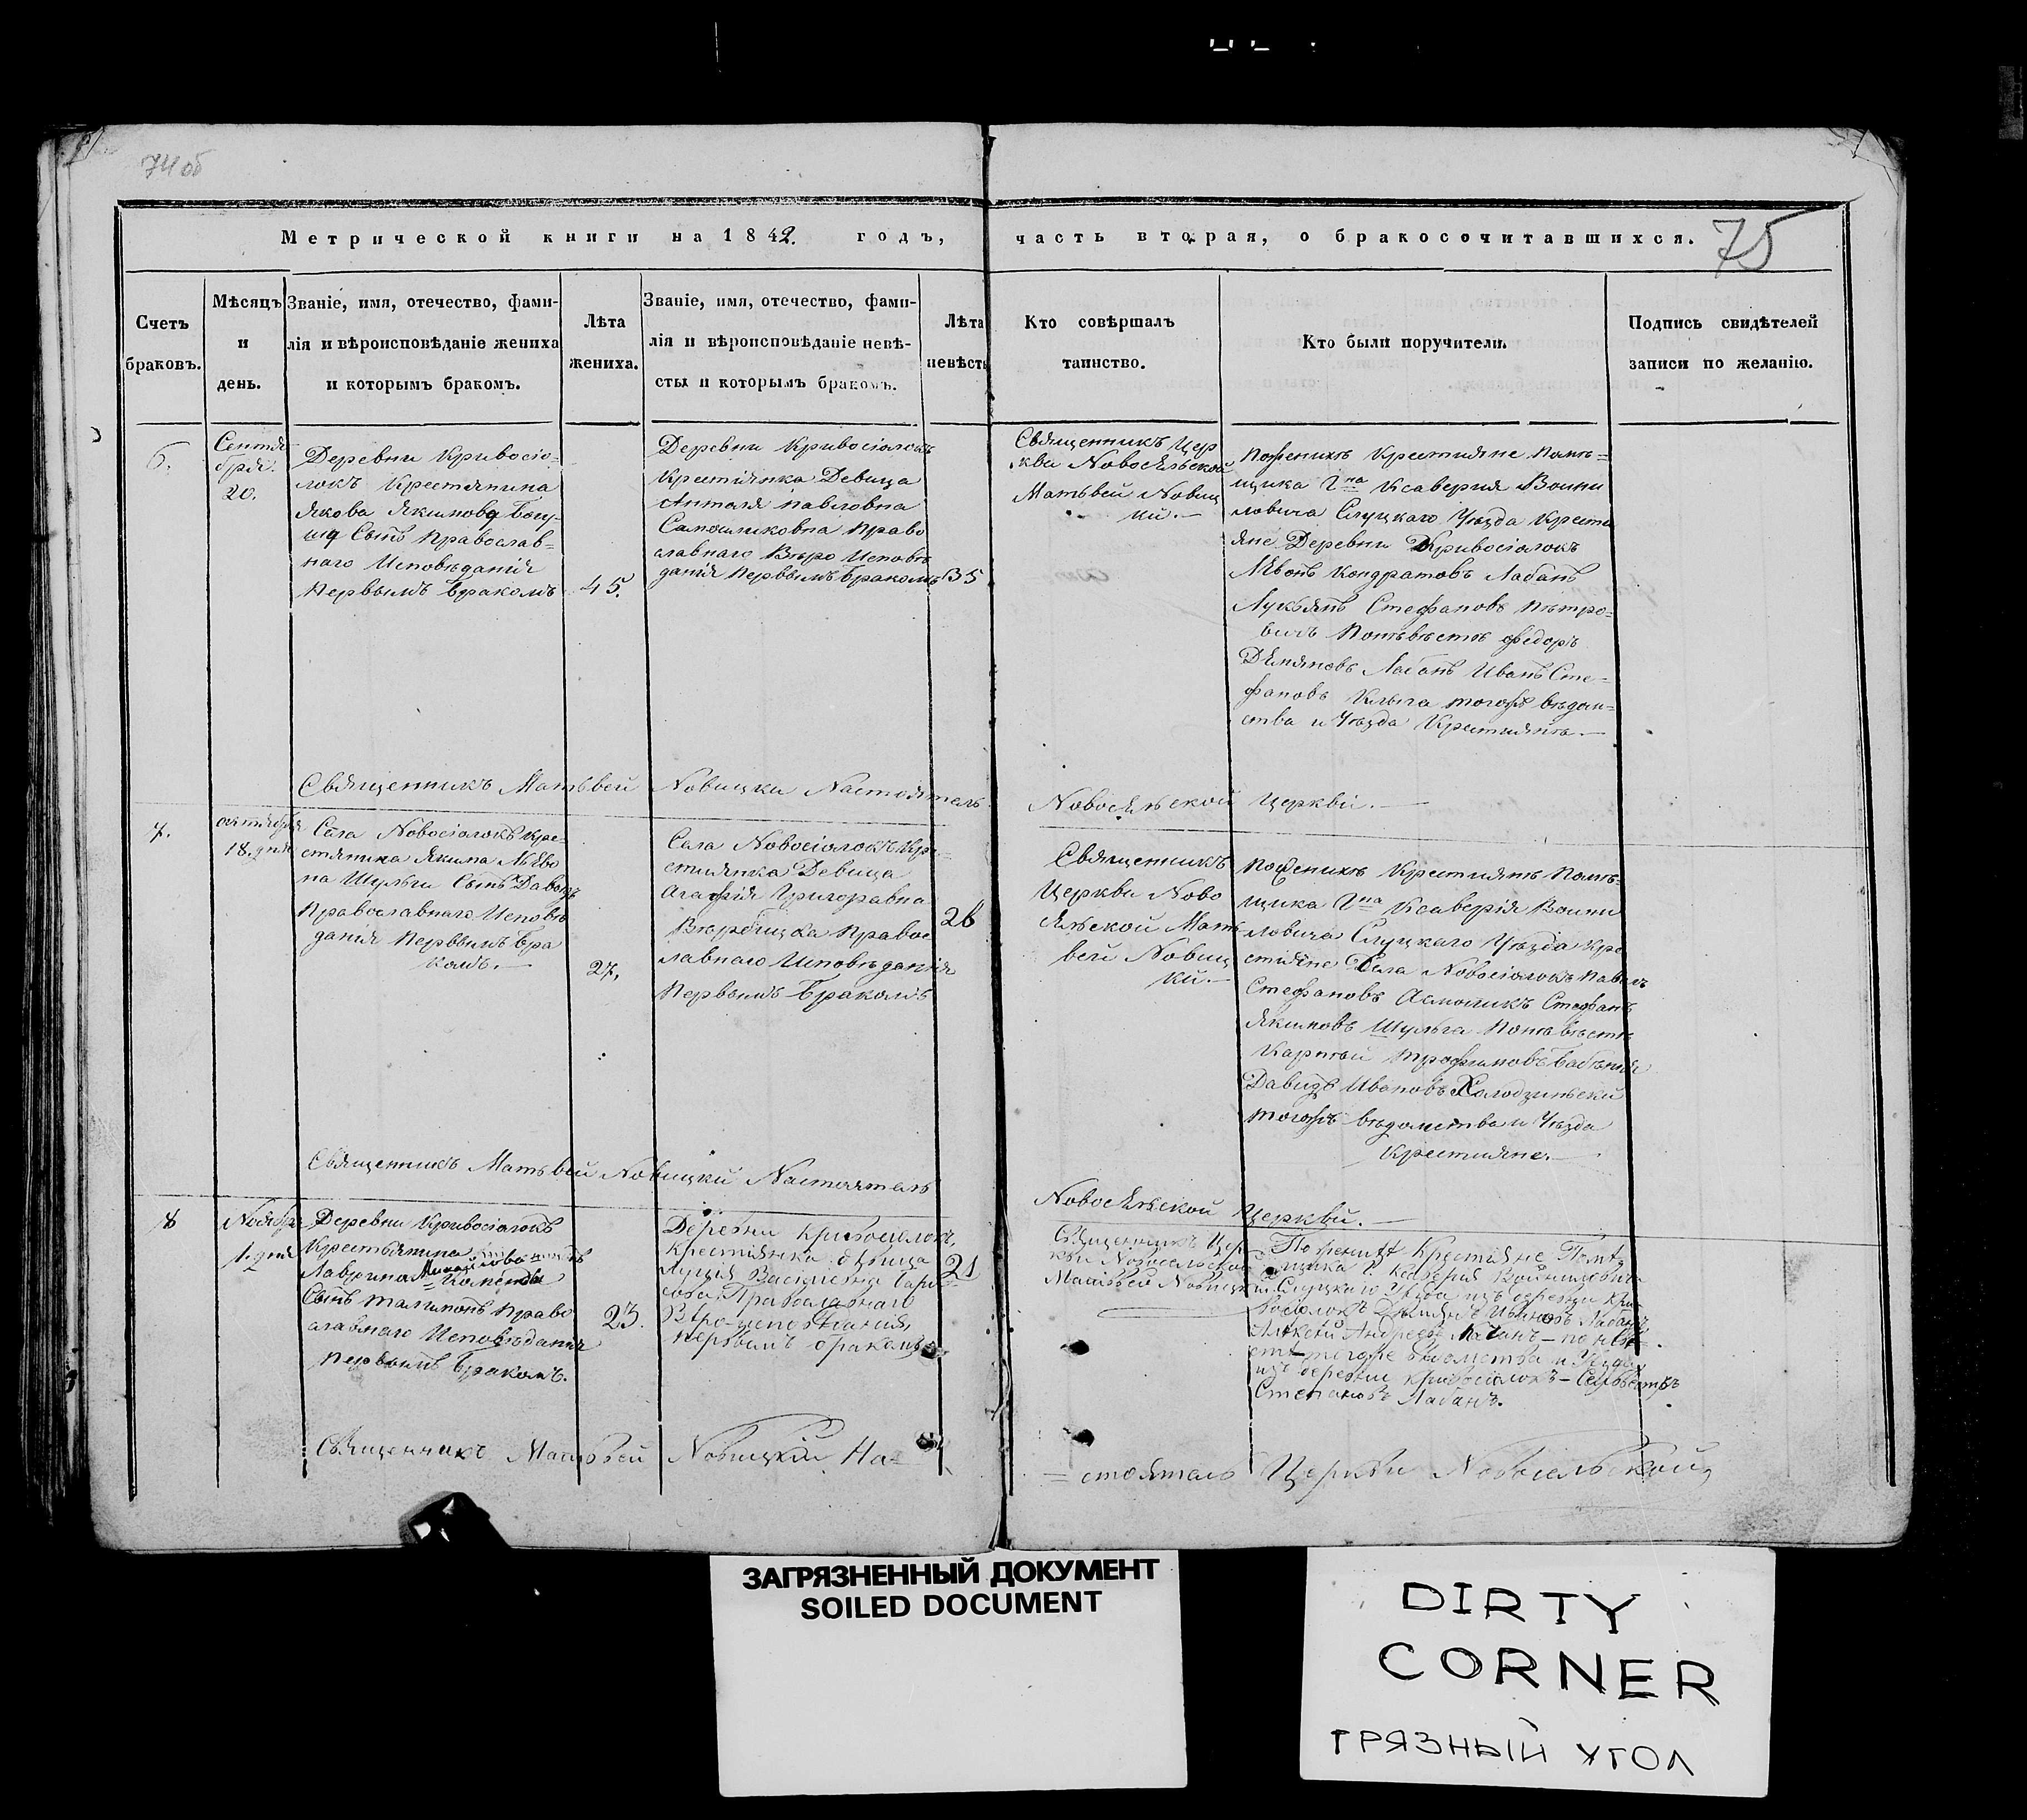 74 об
Метрической книги на 1842. годъ,
часть вторая, о бракосочитавшихся.
75
Счетъ
браковъ.
Мѣсяцъ
и
день.
Званіе, имя, отечество, фами-
лія и вѣроисповѣданіе жениха
и которымъ бракомъ.
Лѣта
жениха.
Званіе, имя, отечество, фами-
лія и вѣроисповѣданіе невѣ-
сты и которымъ бракомъ.
Лѣта
невѣсты
Кто совѣршалъ
таинство.
Кто были поручители.
Подпись свидѣтелей
записи по желанію.
6.
Сентя
бря.
20.
Деревни Кривосіо-
локъ Крестянина
Якова Якимова
Сынъ Православ-
наго Исповѣданія
Первымъ бракомъ
45.
Деревни Кривосіолокъ
Крестіянка Девица
павловна
Право
славнаго Вѣро Исповѣ
данія Первымъ бракомъ
35
Священникъ Цер
кви Новосѣльской
Матьвей Новиц
кій.
Поженихѣ Крестияне Помѣ=
щика Гна Ксаверия Войни
ловича Слуцкаго Уѣзда Крести
яне Деревни Кривосіолокъ
Кондратовъ Лабанъ
Лукьянъ Стефановъ Пѣтро-
вичъ Понѣвѣстѣ Федоръ
Лабанъ Иванъ Сте=
фановъ тогожъ вѣдом=
ства и Уѣзда Крестиянѣ.
Священникъ Матьвей Новицки Настоятель
Новосѣльской Церкви.
7.
октября
18. дня
Сѣла Новосіолокъ Кре-
стянина Якима
на Шульги Сынъ Давыдъ
Православнаго Исповѣ
данія Первымъ Бра
комъ.
27.
Сѣла Новосіолокъ Кре-
стиянка Девица
Агафія Григоравна
Правос
лавнаго Исповѣданія
Первымъ Бракомъ
26
Священникъ
Церкви Ново
сѣльской Мать
вей Новиц
кій.
Поженихѣ Крестиянѣ Помѣ-
щика Гна Ксаверія Войни
ловича Слуцкаго Уѣзда Кре
стіяне Сѣла Новосіолокъ Павелъ
Стефановъ Стефанъ
Якимовъ Шульга Понѣвѣстѣ
Карпѣй Трофимовъ
Давидъ Ивановъ
тогожъ вѣдомства и Уѣзда
Крестияне.
Священникъ Матьвей Новицкій Настоятель
Новосѣльской Церкви.
8
Ноября
1. дня
Деревни Кривосіолокъ
Крестьянина
Михайлова
Сынъ Право
славнаго Исповѣданія
первымъ Бракомъ.
23.
Деревни Кривосіолокъ,
Крестіянка дѣвица
Луція Васильева
Православнаго
Вѣро-исповѣданія,
первымъ бракомъ
21
Священникъ Цер-
кви Новосельской
Матвей Новицкій
По женихѣ Крестіяне Помѣ-
щика Г. Ксаверія Войниловича
Слуцкаго Уѣзда изъ деревни Кри-
восіолокъ Ивановъ Лабанъ
Алѣксѣй Андреевъ Лабанъ — по невѣ-
стѣ тогоже вѣдомства и Уѣзда
изъ деревни Кривосіолокъ — Сельвестръ
Степановъ Лабанъ.
Священникъ Матьвей Новицкій На=
=стоятель Церкви Новосельской,
ЗАГРЯЗНЕННЫЙ ДОКУМЕНТ
SOILED DOCUMENT
DIRTY
CORNER
ГРЯЗНЫЙ УГОЛ